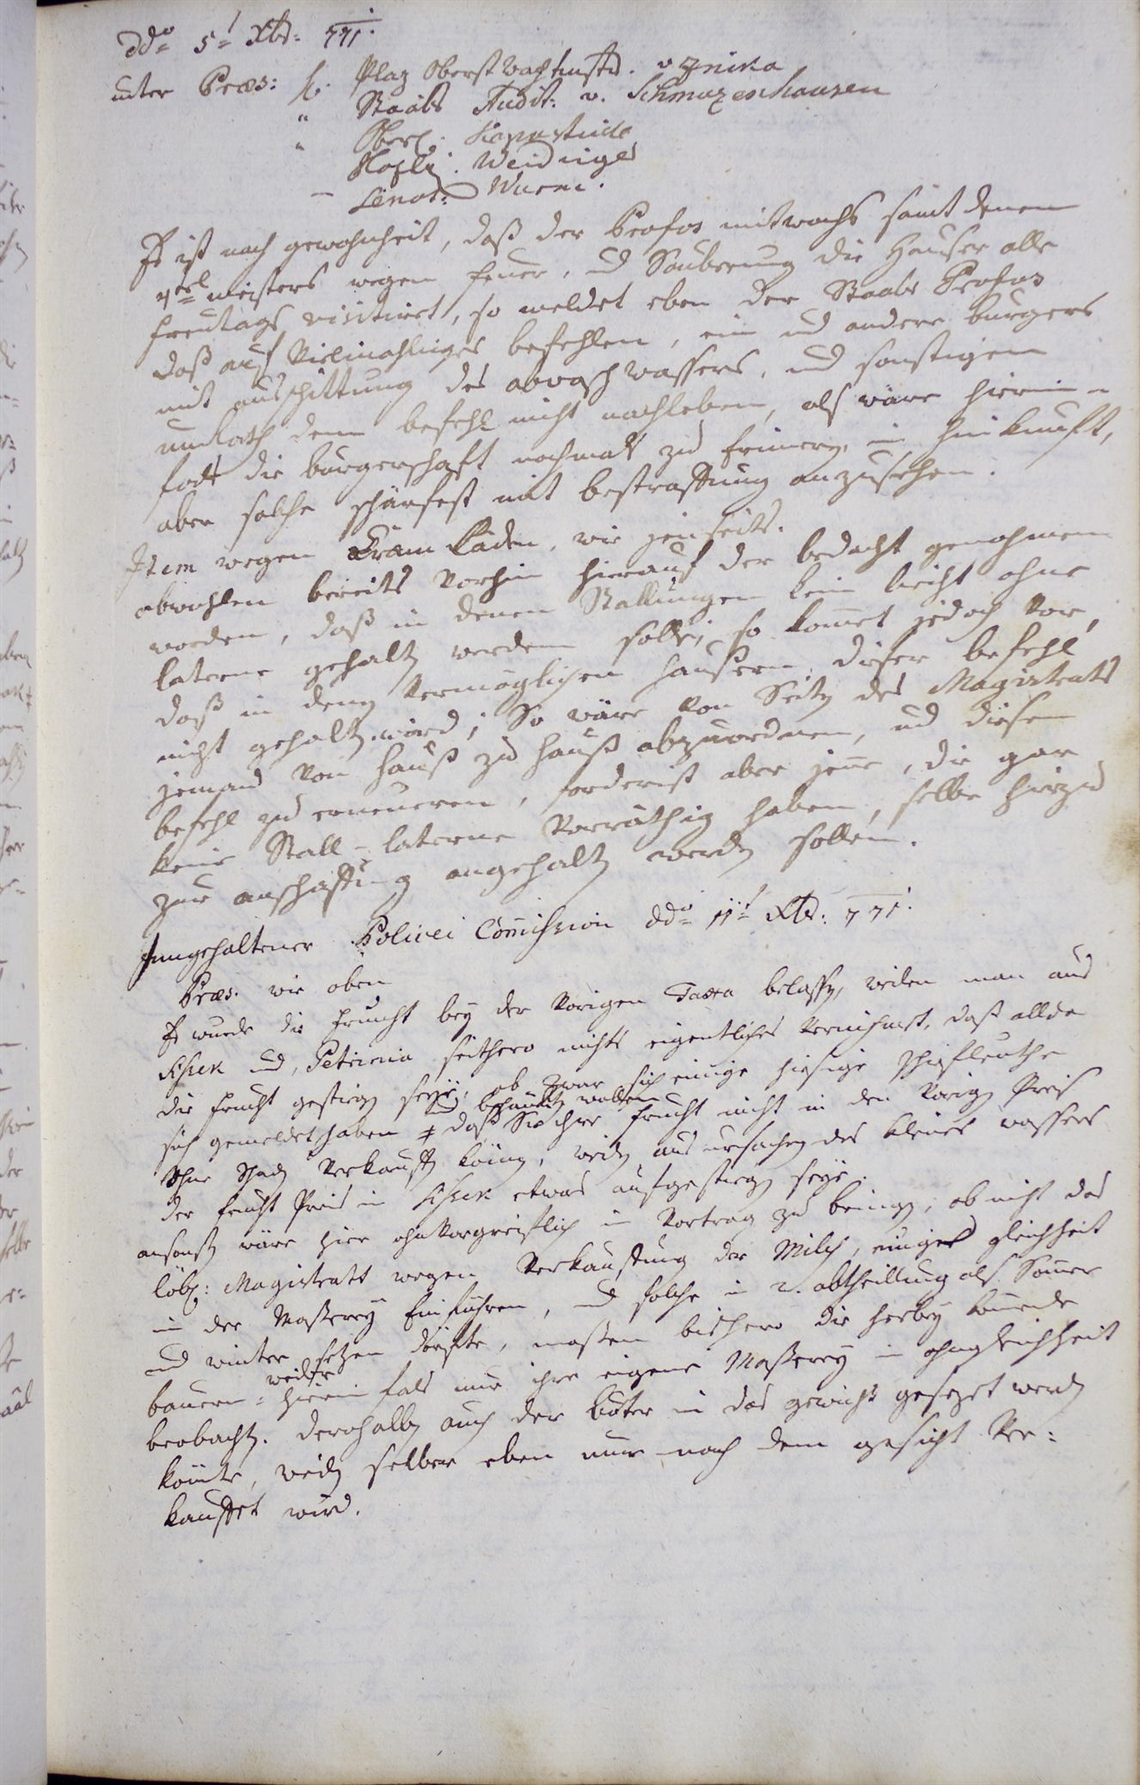 dd̄o 5t Xbr: 771.
unter Præs: H. Plaz Oberst Wachtmstr. v.
" Staabs Audit: v. Schmuzenhausen
" Oberl.
Weidinger
– Senat: Wurm.
Es ist nach gewohnheit, daß der Profos mitwochs samt denen
4tel meisters wegen feuer, und Sauberung die Häuser alle
freytags visitiret, so meldet eben der Staabs Profos
daß auf Vielmahliges befehlen, ein und andere burgers
mit ausschittung des abwasch wassers, und sonstigen
unrath dem befehl nicht nachleben, als wäre hierin-
falls die burgerschaft nochmals zu erinnern, in hinkunft,
aber solche schärfest mit bestraffung anzusehen.
Item wegen Kräm Läden, wie jenseits.
obwohlen bereits Vorhin hierauf der bedacht genohmen
worden, daß in denen Stallungen kein liecht ohne
laterne gehalten werden solle; so komet jedoch Vor,
daß in denen Vermöglichen häussern dieser befehl
nicht gehalten wird; So wäre Von Seiten des Magistrats
jemand Von Hauß zu Hauß abzuordnen, und diesen
befehl zu erneueren, forderist aber jene, die gar
keine Stall-laterne Vorräthig haben, selbe hiezu
zur anschaffung angehalten werden sollen.
Inngehaltener Policei Comission dd̄o 11t Xbr: 771.
Præs. wie oben
Es wurde die frucht bey der Vorigen Taxa belassen, weilen man aus
Sissek und Petrinia seithero nichts eigentliches Vernihmet, daß allda
die frucht gestiegen seye; ob zwar sich einige hiesige schifleuthe
sich gemeldet haben und behaubten wollen daß Sie ihre frucht nicht in den Vorigen Preis
ohne Schaden Verkauffen könen, weilen aus ursachen des kleinen wassers
der frucht Preis in Sissek etwas aufgestiegen seye.
ansonst wäre hier ohnvorgreiflich in Vortrag zu bringen, ob nicht das
löbl: Magistratt wegen Verkauffung der Milch, einige gleichheit
in der Masserey Einführen, und solche in 2. abtheillung als Somer
und winter setzen dörfte, massen bishero die herbey komende
bauern weiber hierin fals nur ihre eigene Masserey in ohngleichheit
beobachten. derohalben auch der buter in das gewicht gesezet werden
könnte, weilen selber eben nur nach dem gesicht Ver:
kauffet wird.